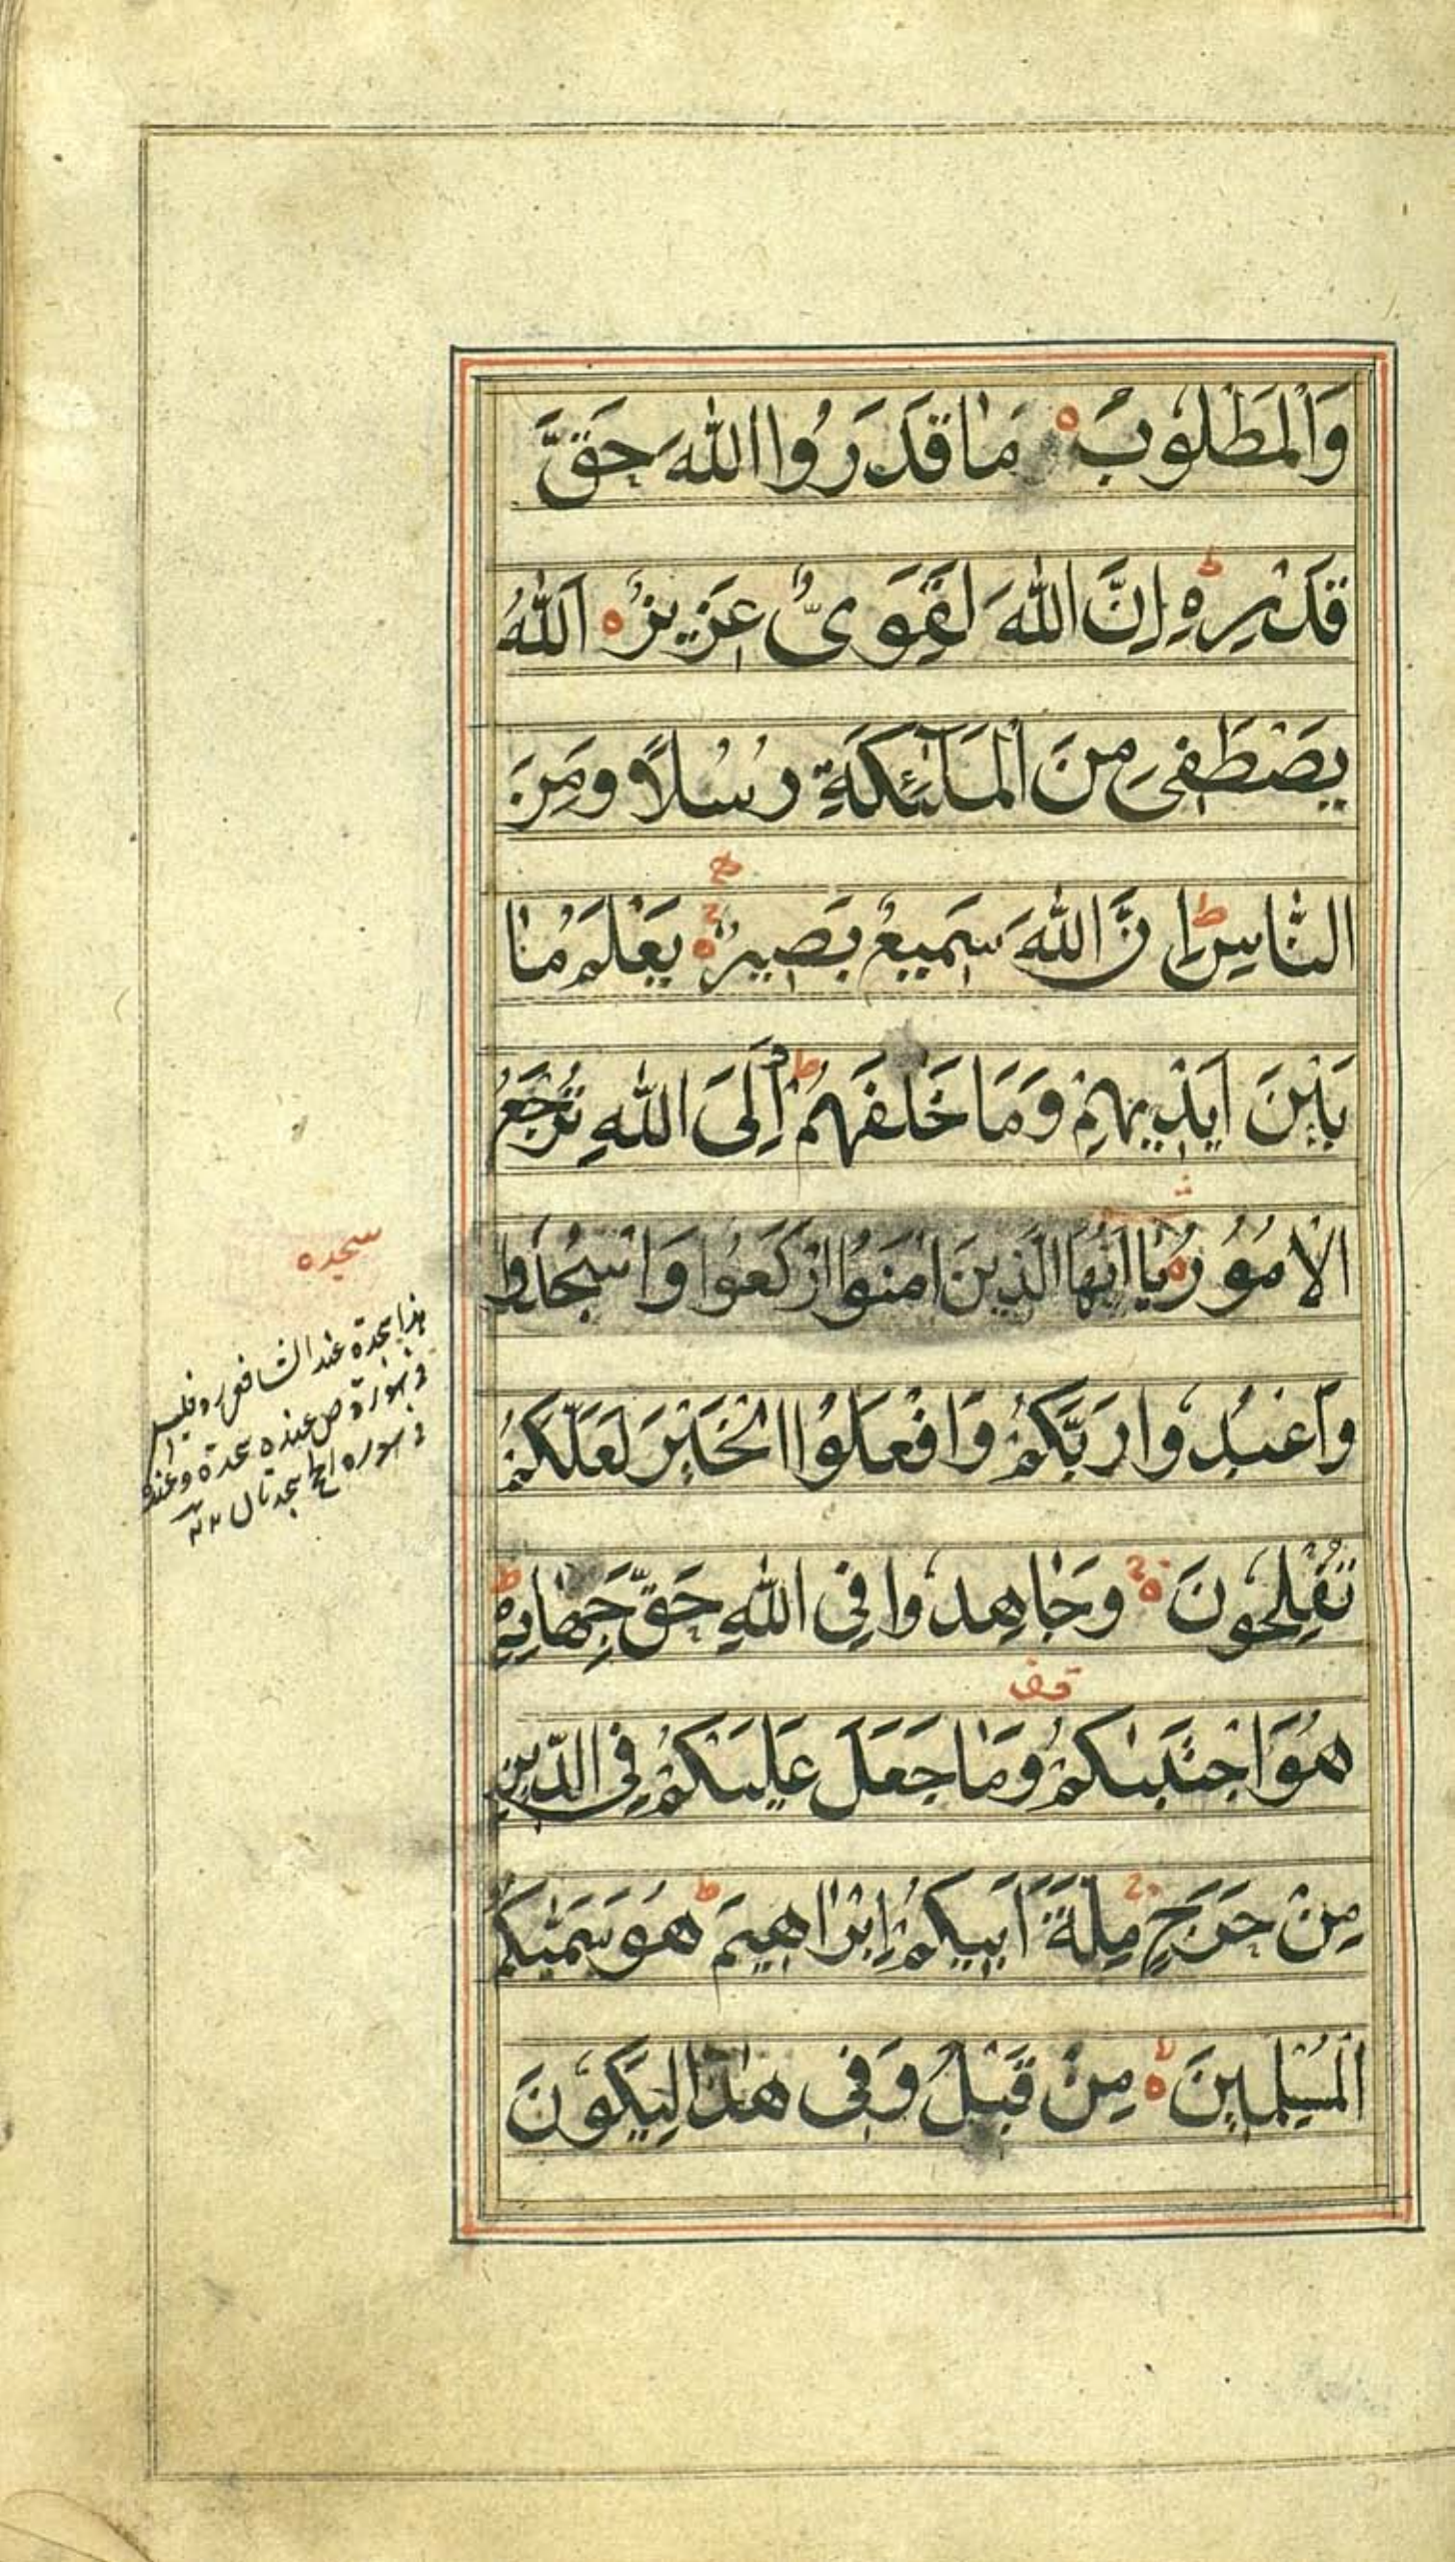 وَالْمَطْلُوبُ ه مَا قَدَرُوا اللّٰهَ حَقَّ
قَدْرِهٖ ط اِنَّ اللّٰهَ لَقَوِىٌّ عَزِيزٌ ه اَللّٰهُ
يَصْطَفِى مِنَ الْمَلٰٓئِكَةِ رُسُلًا وَمِنَ
النَّاسِ ط اِنَّ اللّٰهَ سَمِيعٌ بَصِيرٌ ه يَعْلَمُ مَا
بَيْنَ اَيْدِيهِمْ وَمَا خَلْفَهُمْ ط وَاِلَى اللّٰهِ تُرْجَعُ
الْاُمُورُ ه يَا اَيُّهَا الَّذِينَ اٰمَنُوا ارْكَعُوا وَاسْجُدُوا
وَاعْبُدُوا رَبَّكُمْ وَافْعَلُوا الْخَيْرَ لَعَلَّكُمْ
تُفْلِحُونَ ه وَجَاهِدُوا فِى اللّٰهِ حَقَّ جِهَادِهٖ ط
قف
هُوَ اجْتَبٰىكُمْ وَمَا جَعَلَ عَلَيْكُمْ فِى الدِّينِ
مِنْ حَرَجٍ مِلَّةَ اَبِيكُمْ اِبْرَاهِيمَ ط هُوَ سَمّٰىكُمُ
الْمُسْلِمِينَ ه مِنْ قَبْلُ وَفِى هٰذَا لِيَكُونَ
سجده
هذا سجدة عند الشافعى وليس
فى سورة ص عنده سجدة وعنده
فى سوره الحج سجدتان